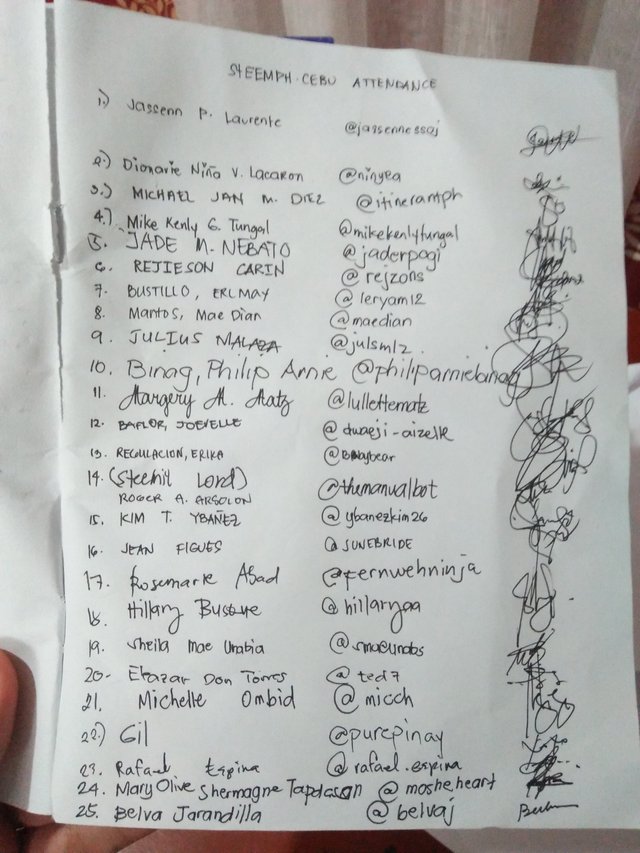 STEEMPH.CEBU ATTENDANCE
1.) Jassenn P. Laurente @jassennessaj
2.) Dionarie Niña V. Lacaron @ninyea
3.) MICHAEL JAN M. DIEZ @itinerantph
4.) Mike Kenly G. Tungal @mikekenlytungal
5. JADE M. NEBATO @jaderpogi
6. REJIESON CARIN @rejzons
7. BUSTILLO, ERLMAY @leryam12
8. Mantos, Mae Dian @maedian
9. JULIUS MALAZA @julsm12
10. Binag, Philip Arnie @philiparniebinag
11. Margery M. Matz @lullettematz
12. BAFLOR, JOEVELLE
13. REGULACION, ERIKA
14. (Steehit Lord) @thumanualbot
ROGER A. ARSOLON
15. KIM T. YBAÑEZ @ybanezkim26
16. JEAN FIGUES @JUNEBRIDE
17. Rosemarie Abad @fernwehninja
18. Hillary @hillaryaa
19. Sheila Mae Unabia @smaeunabs
20. Eleazar Don Torres @ted7
21. Michelle Ombid @micch
22.) Gil @purepinay
23. Rafael Espina @rafael.espina
24. Mary Olive Shermagne Tapdasan @moshe.heart
25. Belva Jarandilla @belvaj